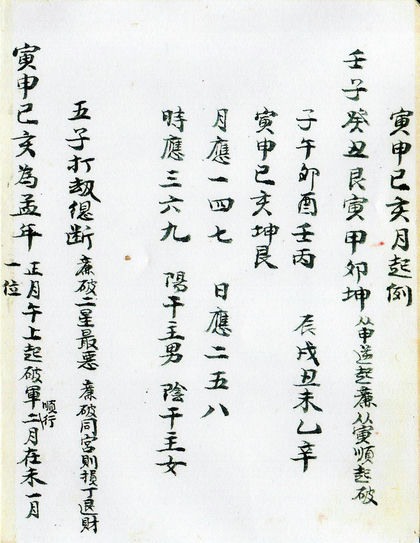 寅申巳亥月起例
壬子癸丑艮寅甲卯坤從申逆起廉從寅順起破
子午卯酉壬丙　辰戌丑未乙辛
寅申巳亥坤艮
月應一四七　日應二五八
時應三六九　陽干主男　陰干主女
五子打劫總斷　廉破二星最惡　廉破同宮則損丁退財
寅申巳亥為孟年　正月午上起破軍順行二月在未一月
一位